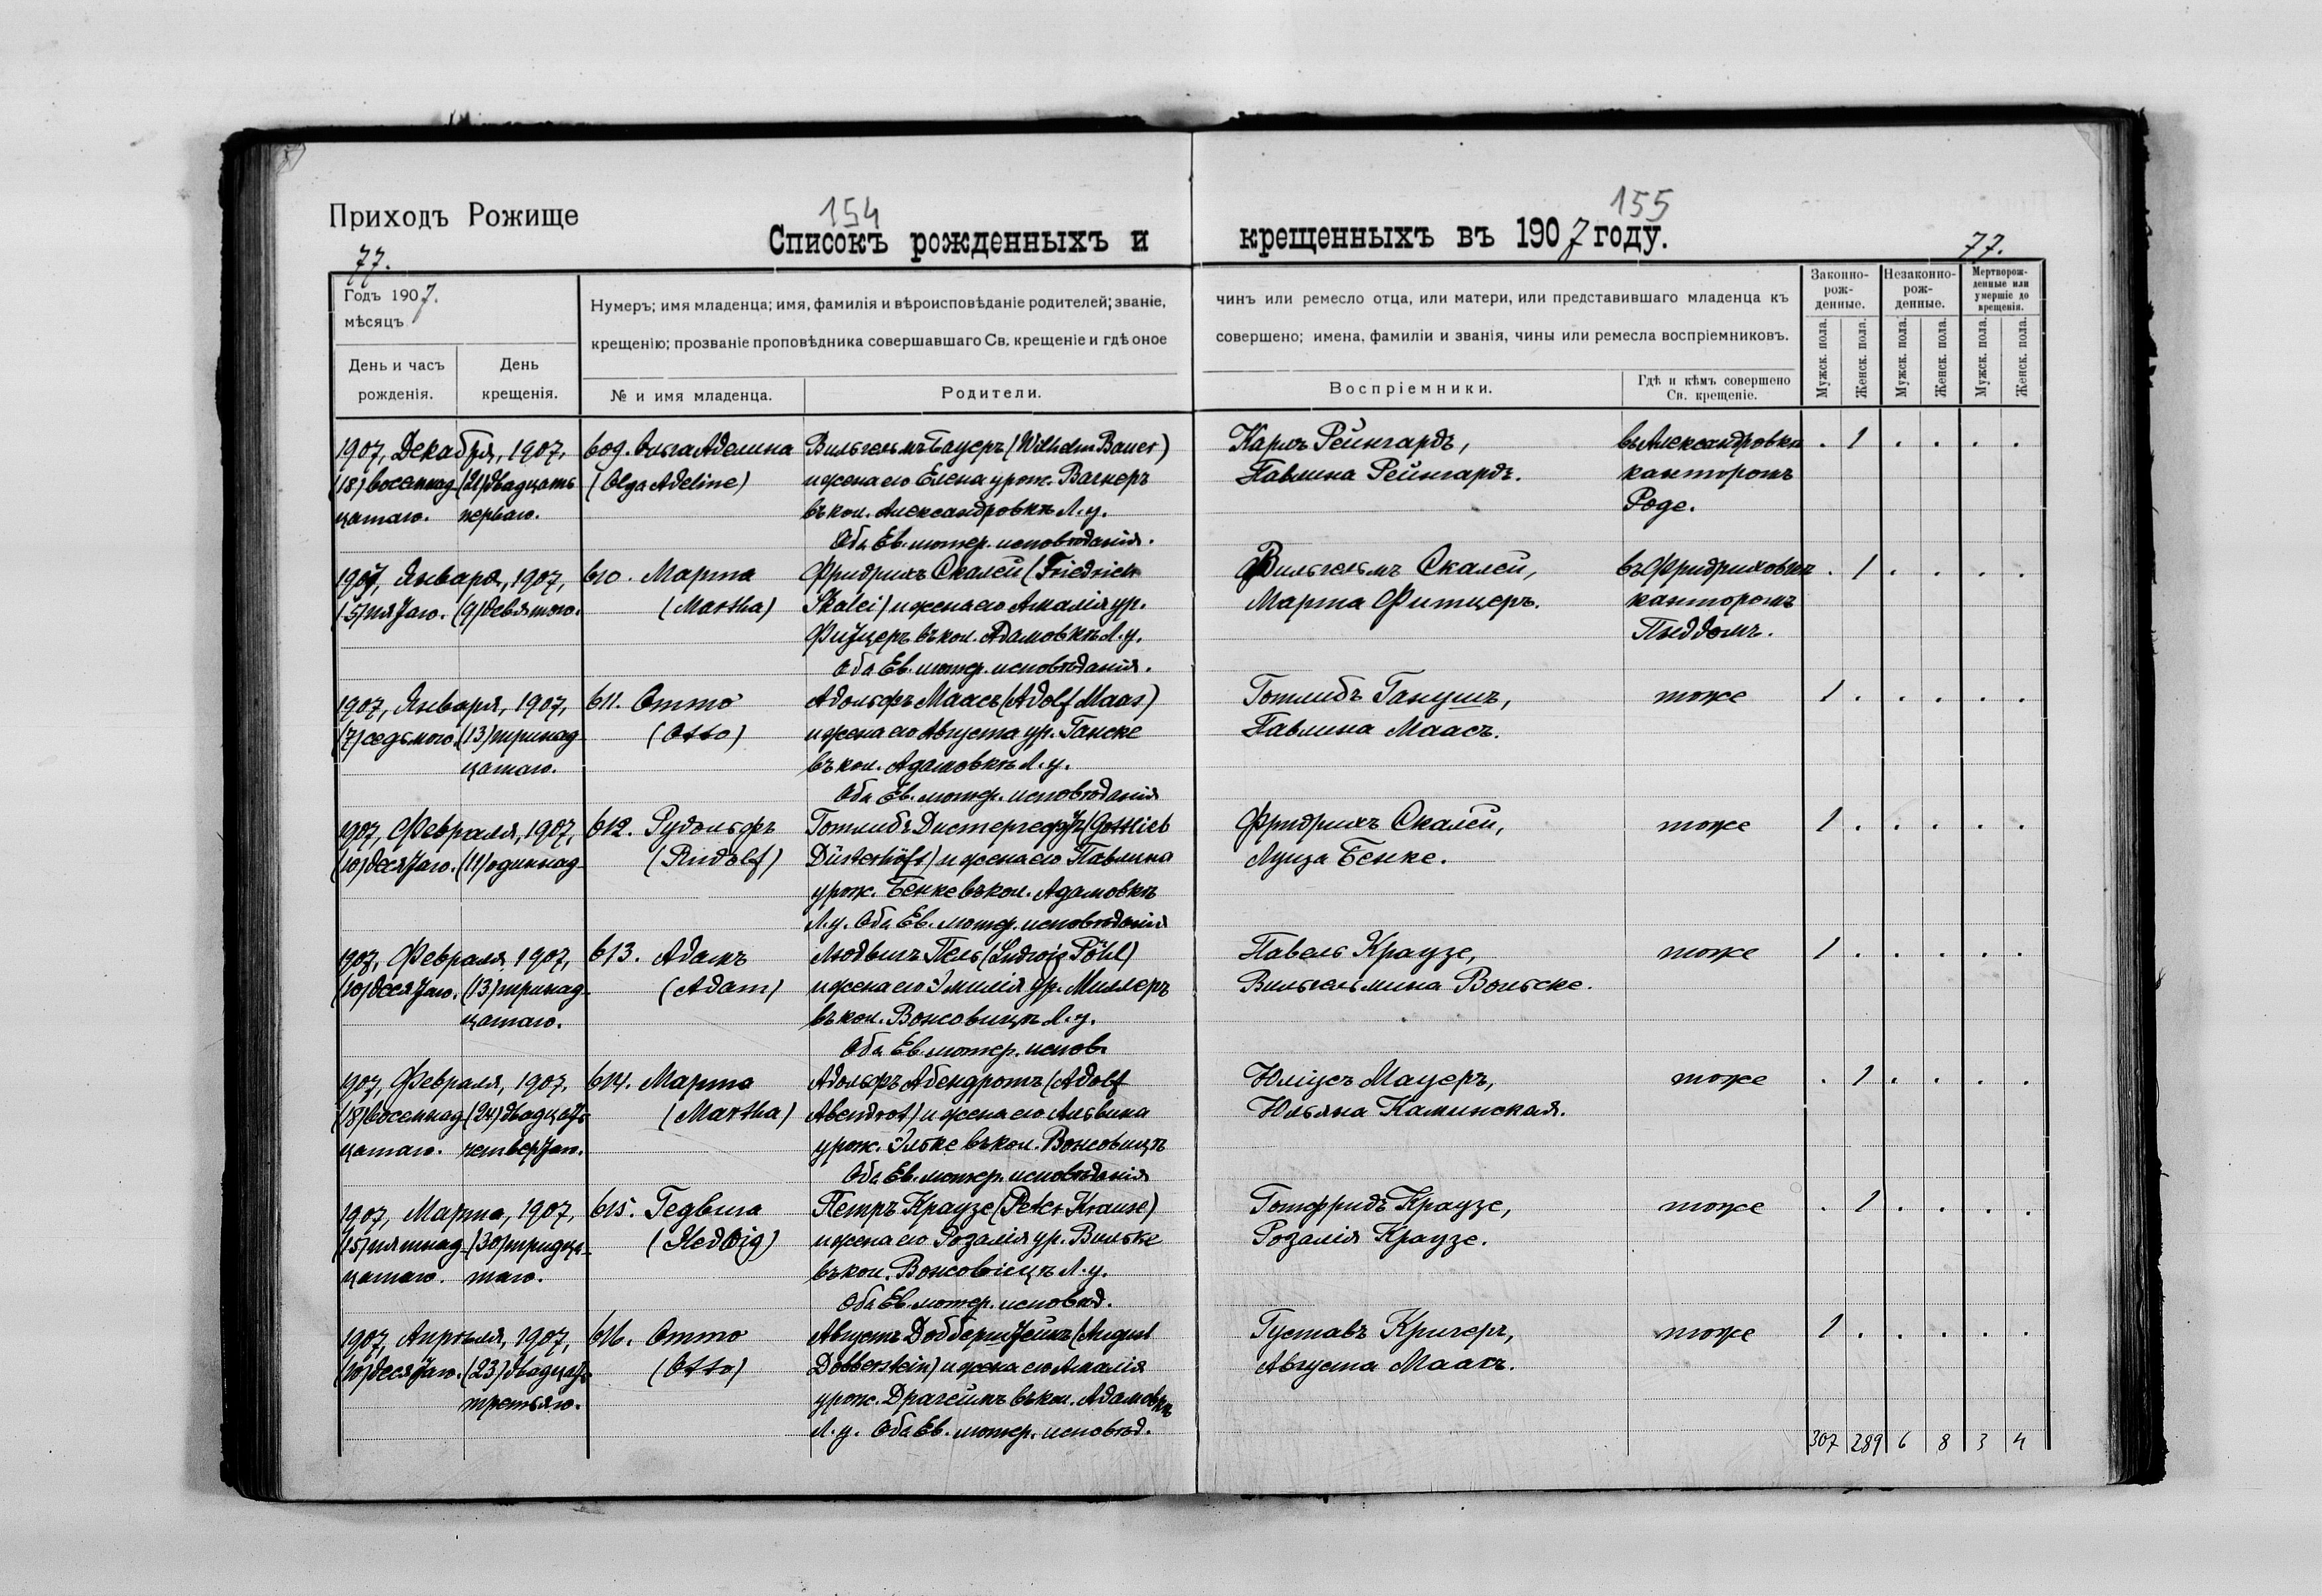 Приходъ Рожище
154
Списокъ рожденныхъ и
77.
Годъ 1907.
мѣсяцъ
День и часъ рожденія.
День крещенія.
Нумеръ; имя младенца; имя, фамилія и вѣроисповѣданіе родителей; званіе,
крещенію; прозваніе проповѣдника совершавшаго Св. крещеніе и гдѣ оное
№ и имя младенца.
Родители.
155
крещенныхъ въ 1907 году.
77.
чинъ или ремесло отца, или матери, или представившаго младенца къ
совершено; имена, фамиліи и званія, чины или ремесла воспріемниковъ.
Воспріемники.
Гдѣ и кѣмъ совершено
Св. крещеніе.
Законно-
рож-
денные.
Незаконно-
рож-
денные.
Мертворож-
денные или
умершіе до
крещенія.
Мужск. пола.
Женск. пола.
Мужск. пола.
Женск. пола.
Мужск. пола.
Женск. пола.
1907, Декабря, 1907, 609. Ольга Аделина Вильгельмъ Бауеръ (Wilhelm Bauer) Карлъ Рейнгардъ, въ Александровкѣ . 1 . . . .
(18) восемнад- (21) двадцать (Olga Adeline) и жена его Елена урож. Вагнеръ Павлина Рейнгардъ. канторомъ
цатаго. перваго. въ кол. Александровкѣ Л. у. Роде.
Оба Ев. лютер. исповѣданія.
1907, Января, 1907, 610. Марта Фридрихъ Скалей (Friedrich Вильгельмъ Скалей, въ Фридриховкѣ . 1 . . . .
(5) пятаго. (9) девятого. (Martha) Skalei) и жена его Амалія ур. Марта Фитцеръ. канторомъ
Фитцеръ въ кол. Адамовкѣ Л. у.
Оба Ев. лютер. исповѣданія.
1907, Января, 1907, 611. Отто Адольфъ Маасъ (Adolf Maas) Готлибъ Ганушъ, тоже 1 . . . . .
(7) седьмого. (13) тринад- (Otto) и жена его Августа ур. Ганске Павлина Маасъ.
цатаго. въ кол. Адамовкѣ Л. у.
Оба Ев. лютер. исповѣданія
1907, Февраля, 1907, 612. Рудольфъ Готлибъ Дистергефтъ (Gottlieb Фридрихъ Скалей, тоже 1 . . . . .
(10) десятаго. (11) одиннад- (Rudolf) Düsterhöft) и жена его Павлина Луиза Бенке.
урож. Бенке въ кол. Адамовкѣ
Л. у. Оба Ев. лютер. исповѣданія
1907, Февраля, 1907, 613. Адамъ Людвигъ Пель (Ludwig Pöhl) Павелъ Краузе, тоже 1 . . . . .
(10) десятаго. (13) тринад- (Adam) и жена его Эмилія ур. Миллеръ Вильгельмина Вольске.
цатаго. въ кол. Вонсовицѣ Л. у.
Оба Ев. лютер. испов.
1907, Февраля, 1907, 614. Марта Адольфъ Абендротъ (Adolf Юліусъ Мауеръ, тоже . 1 . . . .
(18) восемнад- (24) двадцать (Martha) Abendrot) и жена его Альвина Юльяна Каминская.
цатаго. четвертаго. урож. Эльке въ кол. Вонсовицѣ
Оба Ев. лютер. исповѣданія
1907, Марта, 1907, 615. Гедвига Петръ Краузе (Peter Krause) Готфридъ Краузе, тоже . 1 . . . .
(15) пятнад- (30) тридца- (Hedwig) и жена его Розалія ур. Вильке Розалія Краузе.
цатаго. таго. въ кол. Вонсовицѣ Л. у.
Оба Ев. лютер. исповѣд.
1907, Апрѣля, 1907, 616. Отто Августъ Добберштейнъ (August Густавъ Кригеръ, тоже 1 . . . . .
(10) десятаго. (23) двадцать (Otto) Dobberstein) и жена его Амалія Августа Маасъ.
третьяго. урож. Драгеймъ въ кол. Адамовкѣ
Л. у. Оба Ев. лютер. исповѣд.
307 289 6 8 3 4